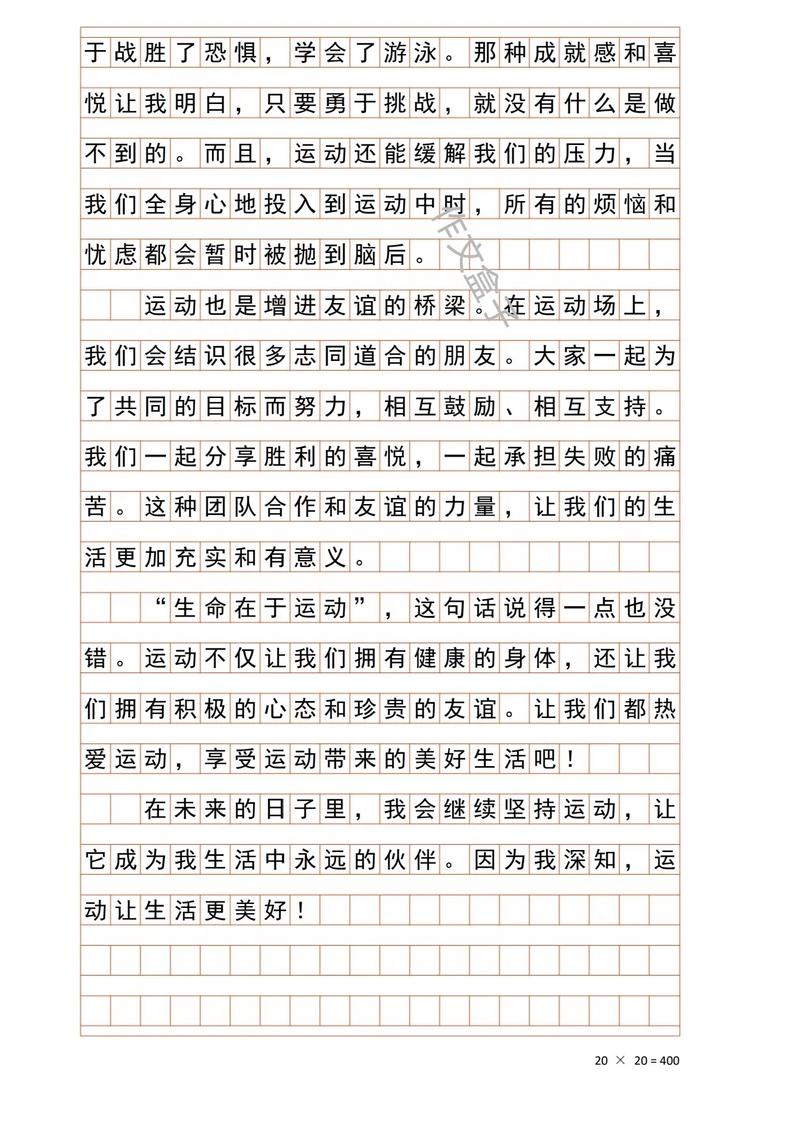 于战胜了恐惧，学会了游泳。那种成就感和喜
悦让我明白，只要勇于挑战，就没有什么是做
不到的。而且，运动还能缓解我们的压力，当
我们全身心地投入到运动中时，所有的烦恼和
忧虑都会暂时被抛到脑后。
运动也是增进友谊的桥梁。在运动场上，
我们会结识很多志同道合的朋友。大家一起为
了共同的目标而努力，相互鼓励、相互支持。
我们一起分享胜利的喜悦，一起承担失败的痛
苦。这种团队合作和友谊的力量，让我们的生
活更加充实和有意义。
“生命在于运动”，这句话说得一点也没
错。运动不仅让我们拥有健康的身体，还让我
们拥有积极的心态和珍贵的友谊。让我们都热
爱运动，享受运动带来的美好生活吧！
在未来的日子里，我会继续坚持运动，让
它成为我生活中永远的伙伴。因为我深知，运
动让生活更美好！
20 × 20 = 400
作文盒子